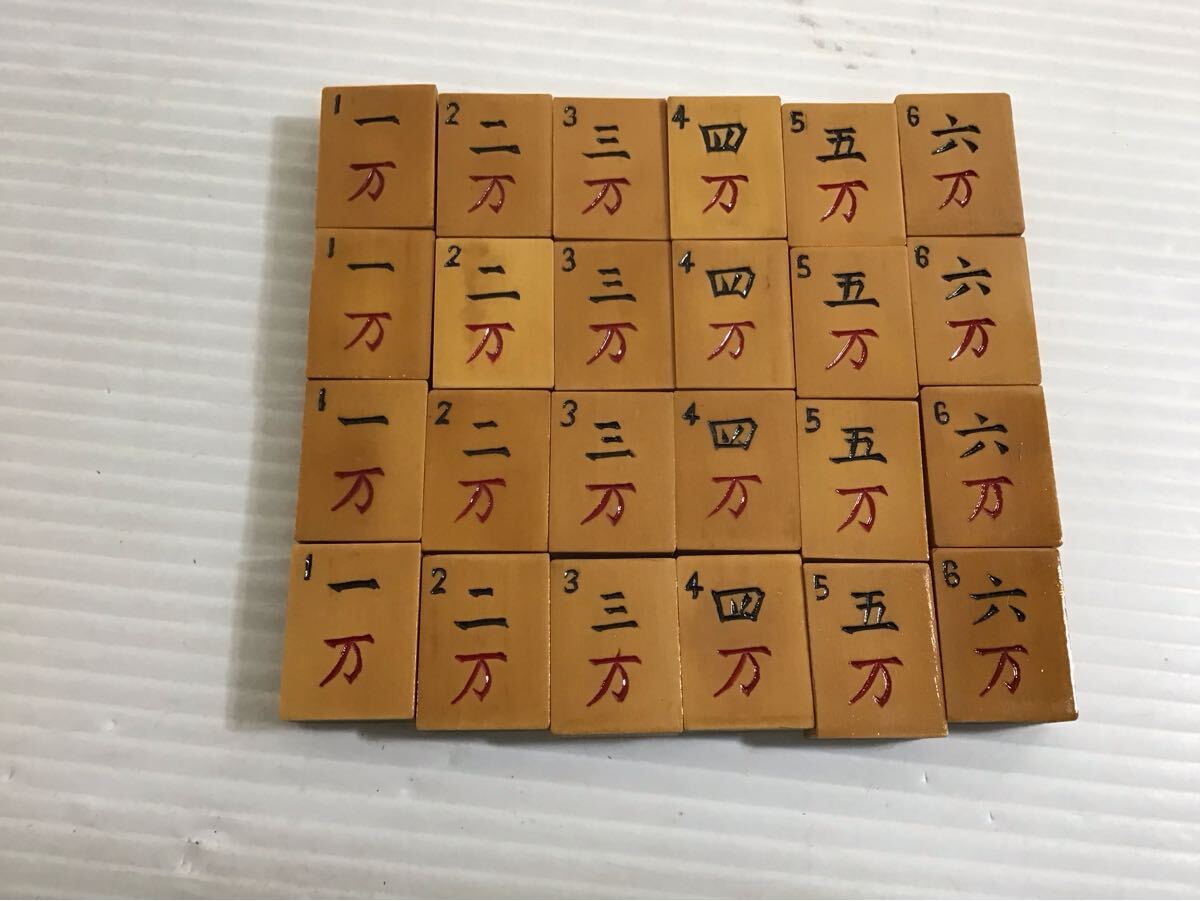 1 一 2 二 3 三 4 四 5 五 6 六
万 万 万 万 万 万
1 一 2 二 3 三 4 四 5 五 6 六
万 万 万 万 万 万
1 一 2 二 3 三 4 四 5 五 6 六
万 万 万 万 万 万
1 一 2 二 3 三 4 四 5 五 6 六
万 万 万 万 万 万